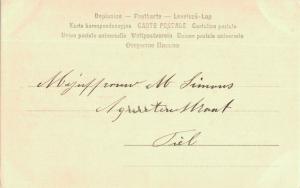 Dopisnice — Postkarte — Levelező-Lap
Carte korespondencyjna CARTE POSTALE Cartolina postale
Union postale universelle Weltpostverein Unione postale universale
Mejuffrouw M Simons
straat
Tiel